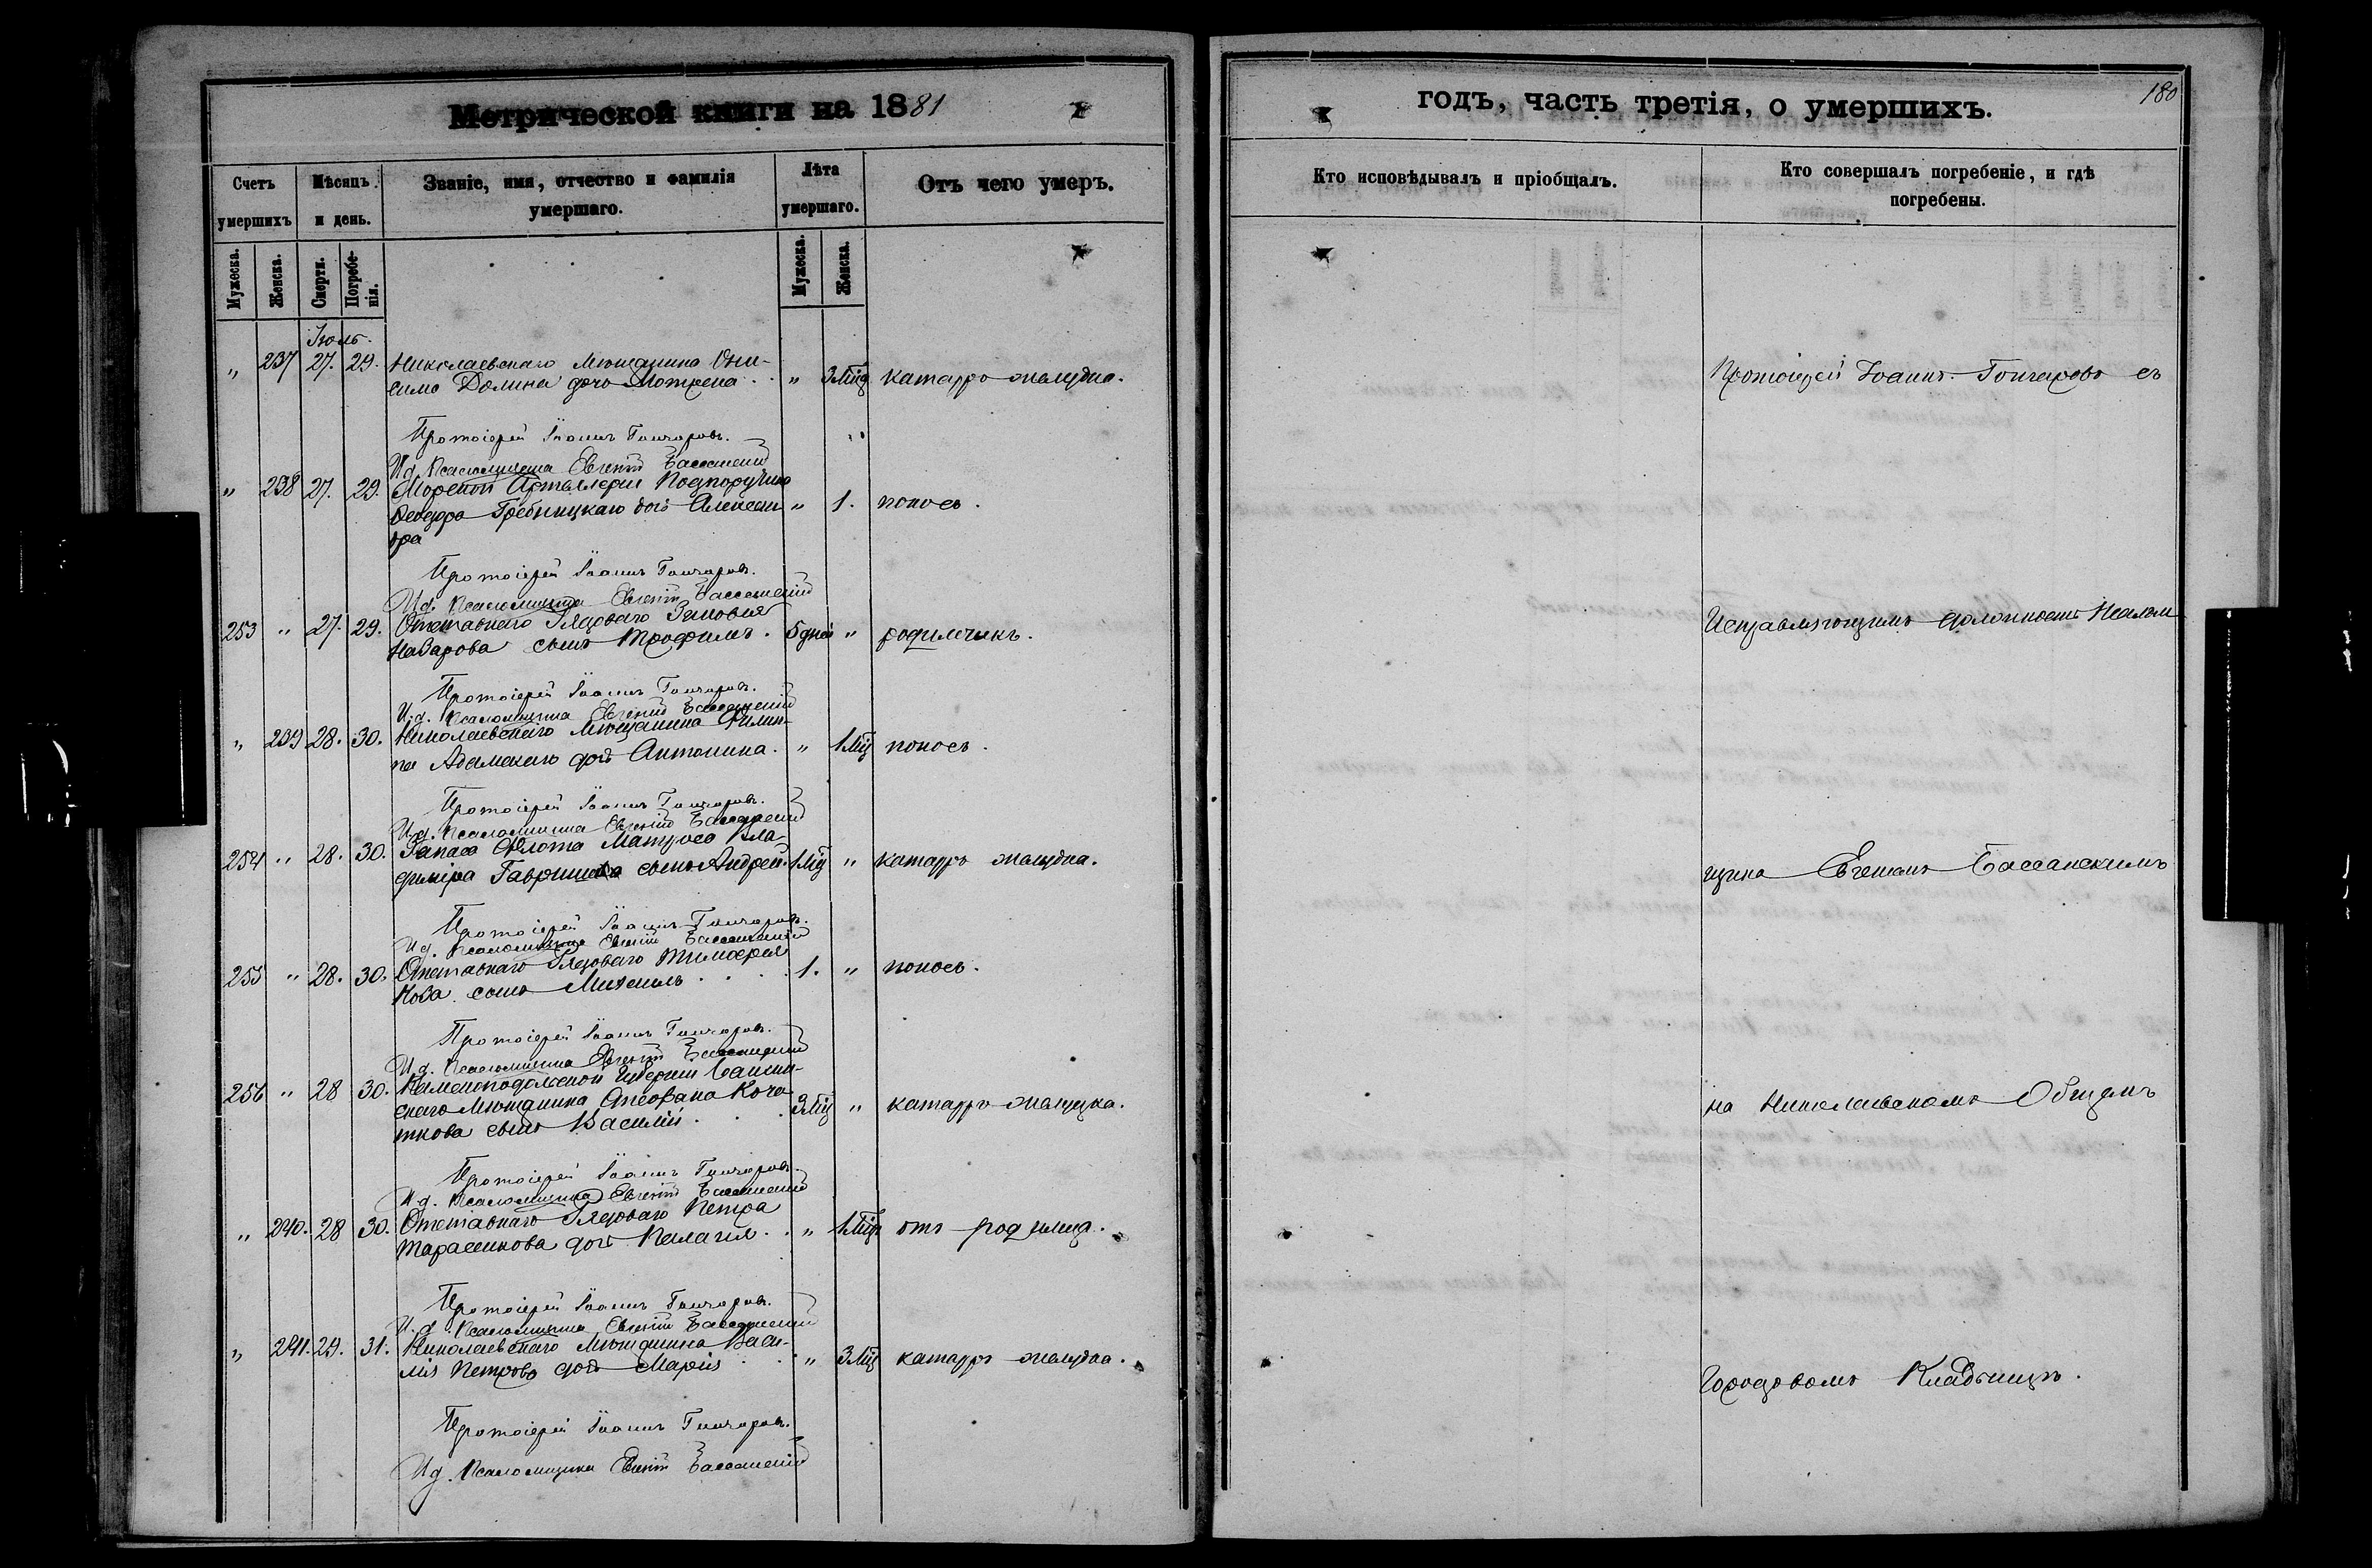 Метрической книги на 1881
годъ, часть третія, о умершихъ.
180
Счетъ умершихъ
Мѣсяцъ и день.
Званіе, имя, отчество и фамилія умершаго.
Лѣта умершаго.
Отъ чего умеръ.
Кто исповѣдывалъ и пріобщалъ.
Кто совершалъ погребеніе, и гдѣ погребены.
Мужеска.
Женска.
Смерти.
Погребе-
нія.
Мужеска.
Женска.
Іюль.
" 237 27. 29. Николаевскаго Мѣщанина Они-
сима Долина дочь Мотрена . . " 3 мѣц катарръ желудка.
Протоіерей Іоаннъ Гончаровъ.
И.д. Псаломщика Евгеній Бассанскій
" 238 27. 29. Морской Артиллеріи Подпоручика
Ѳеодора Гребницкаго дочь Алексан " 1. поносъ.
дра
Протоіерей Іоаннъ Гончаровъ.
И.д. Псаломщика Евгеній Бассанскій
253 " 27. 29. Отставнаго Рядоваго Зиновія
Назарова сынъ Трофимъ. 5 дней " родимчикъ.
Протоіерей Іоаннъ Гончаровъ.
И.д. Псаломщика Евгеній Бассанскій
" 239 28. 30. Николаевскаго Мѣщанина Филип-
па Адамскаго дочь Антонина. " 1 мѣц поносъ.
Протоіерей Іоаннъ Гончаровъ.
И.д. Псаломщика Евгеній Бассанскій
254 " 28. 30. Запаса Флота Матроса Вла-
диміра Гавришка сынъ Андрей. 1 мѣц " катарръ желудка.
Протоіерей Іоаннъ Гончаровъ.
И.д. Псаломщика Евгеній Бассанскій
255 " 28. 30. Отставнаго Рядоваго Тимоѳея
Кова сынъ Михаилъ . . . 1. " поносъ.
Протоіерей Іоаннъ Гончаровъ.
И.д. Псаломщика Евгеній Бассанскій
256 " 28 30. Каменоподольской Губерніи
скаго Мѣщанина
сынъ Василій. . . 3 мѣц " катарръ желудка.
Протоіерей Іоаннъ Гончаровъ.
И.д. Псаломщика Евгеній Бассанскій
" 240. 28 30. Отставнаго Рядоваго Петра
Тарасенкова дочь Пелагія. . " 1 мѣц отъ родимца.
Протоіерей Іоаннъ Гончаровъ.
И.д. Псаломщика Евгеній Бассанскій
" 241. 29. 31. Николаевскаго Мѣщанина Васи-
лія Петрова дочь Марія . . " 3 мѣц катарръ желудка.
Протоіерей Іоаннъ Гончаровъ.
И.д. Псаломщика Евгеній Бассанскій
Протоіерей Іоаннъ Гончаровъ съ
Исправляющимъ должность Псалом
щика Евгеніемъ Бассанскимъ
на Николаевскомъ Общемъ
Городовомъ Кладбищѣ.